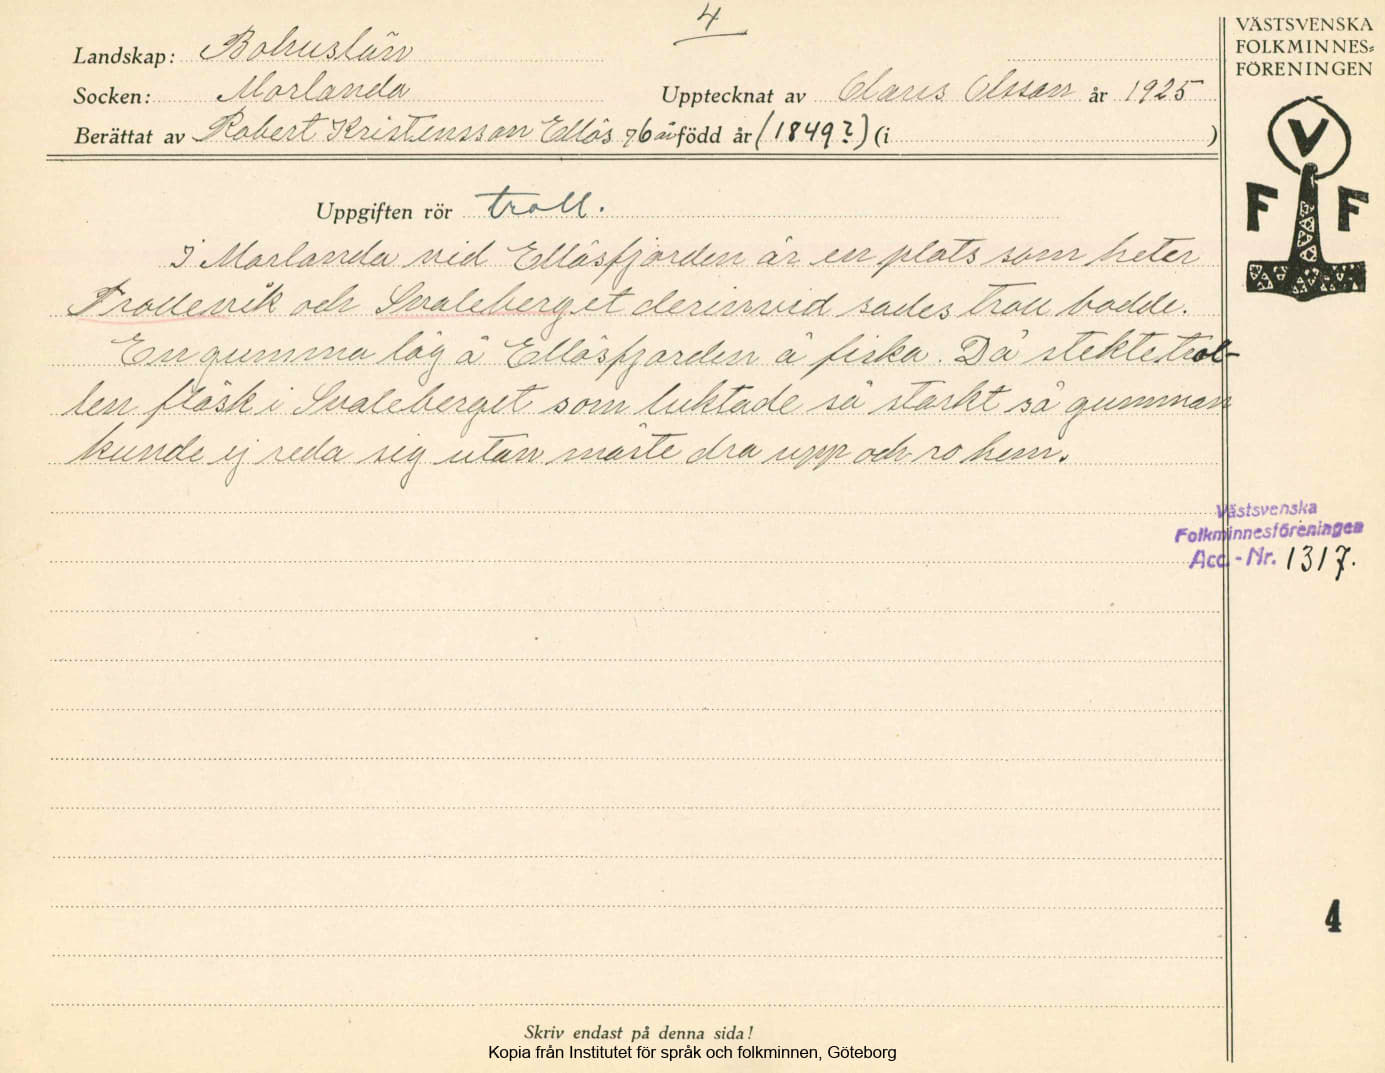 4
Landskap: Bohuslän
Socken: Morlanda
Upptecknat av Claus Olsson år 1925
Berättat av Robert Kristensson Ellös 76 år född år (1849?) (i )
VÄSTSVENSKA
FOLKMINNES=
FÖRENINGEN
V
F F
Uppgiften rör troll.
I Morlanda vid Ellösfjorden är en plats som heter
Trollevik och Svaleberget derinvid sades troll bodde.
En gumma låg å Ellösfjorden å fiska. Då stekte trol-
len fläsk i Svaleberget som luktade så starkt så gumman
kunde ej reda sig utan måste dra upp och ro hem.
Västsvenska
Folkminnesföreningen
Acc.-Nr. 1317.
4
Skriv endast på denna sida!
Kopia från Institutet för språk och folkminnen, Göteborg